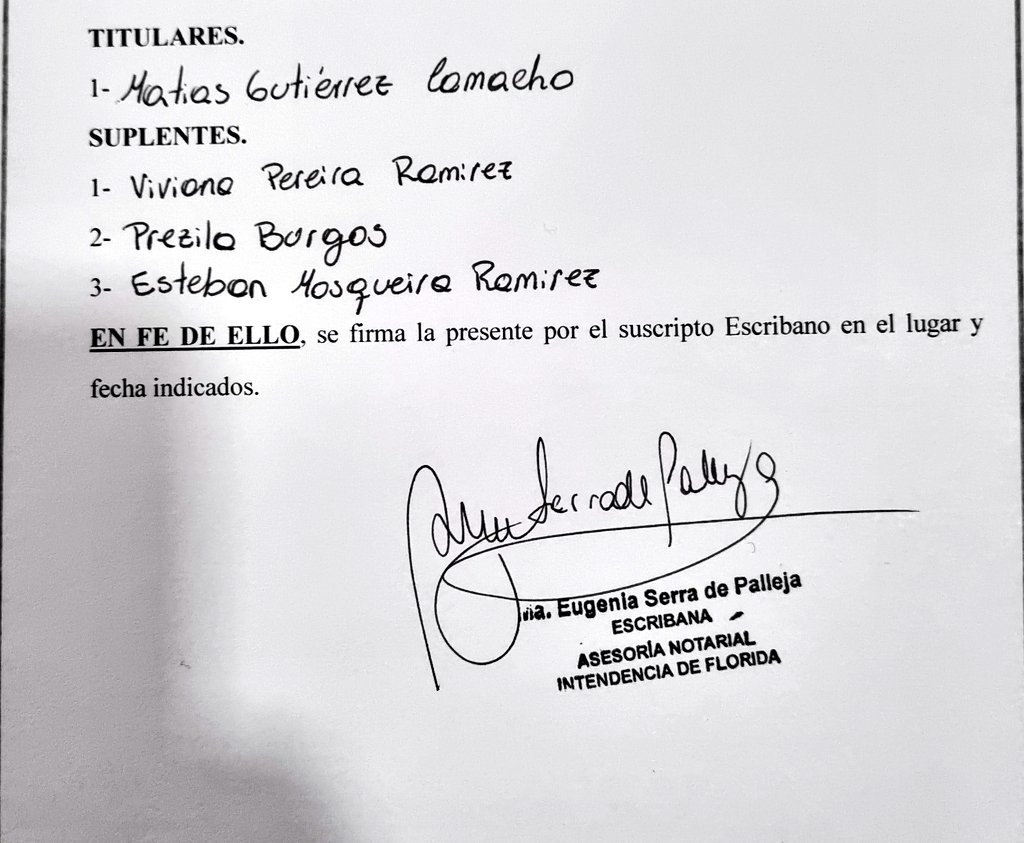 TITULARES.
1- Matias Gutiérrez Camacho
SUPLENTES.
1- Viviana Pereira Ramirez
2- Prezila Burgos
3- Esteban Mosqueira Ramirez
EN FE DE ELLO, se firma la presente por el suscripto Escribano en el lugar y
fecha indicados.
Serra de Palleja
Eugenia Serra de Palleja
ESCRIBANA
ASESORÍA NOTARIAL
INTENDENCIA DE FLORIDA